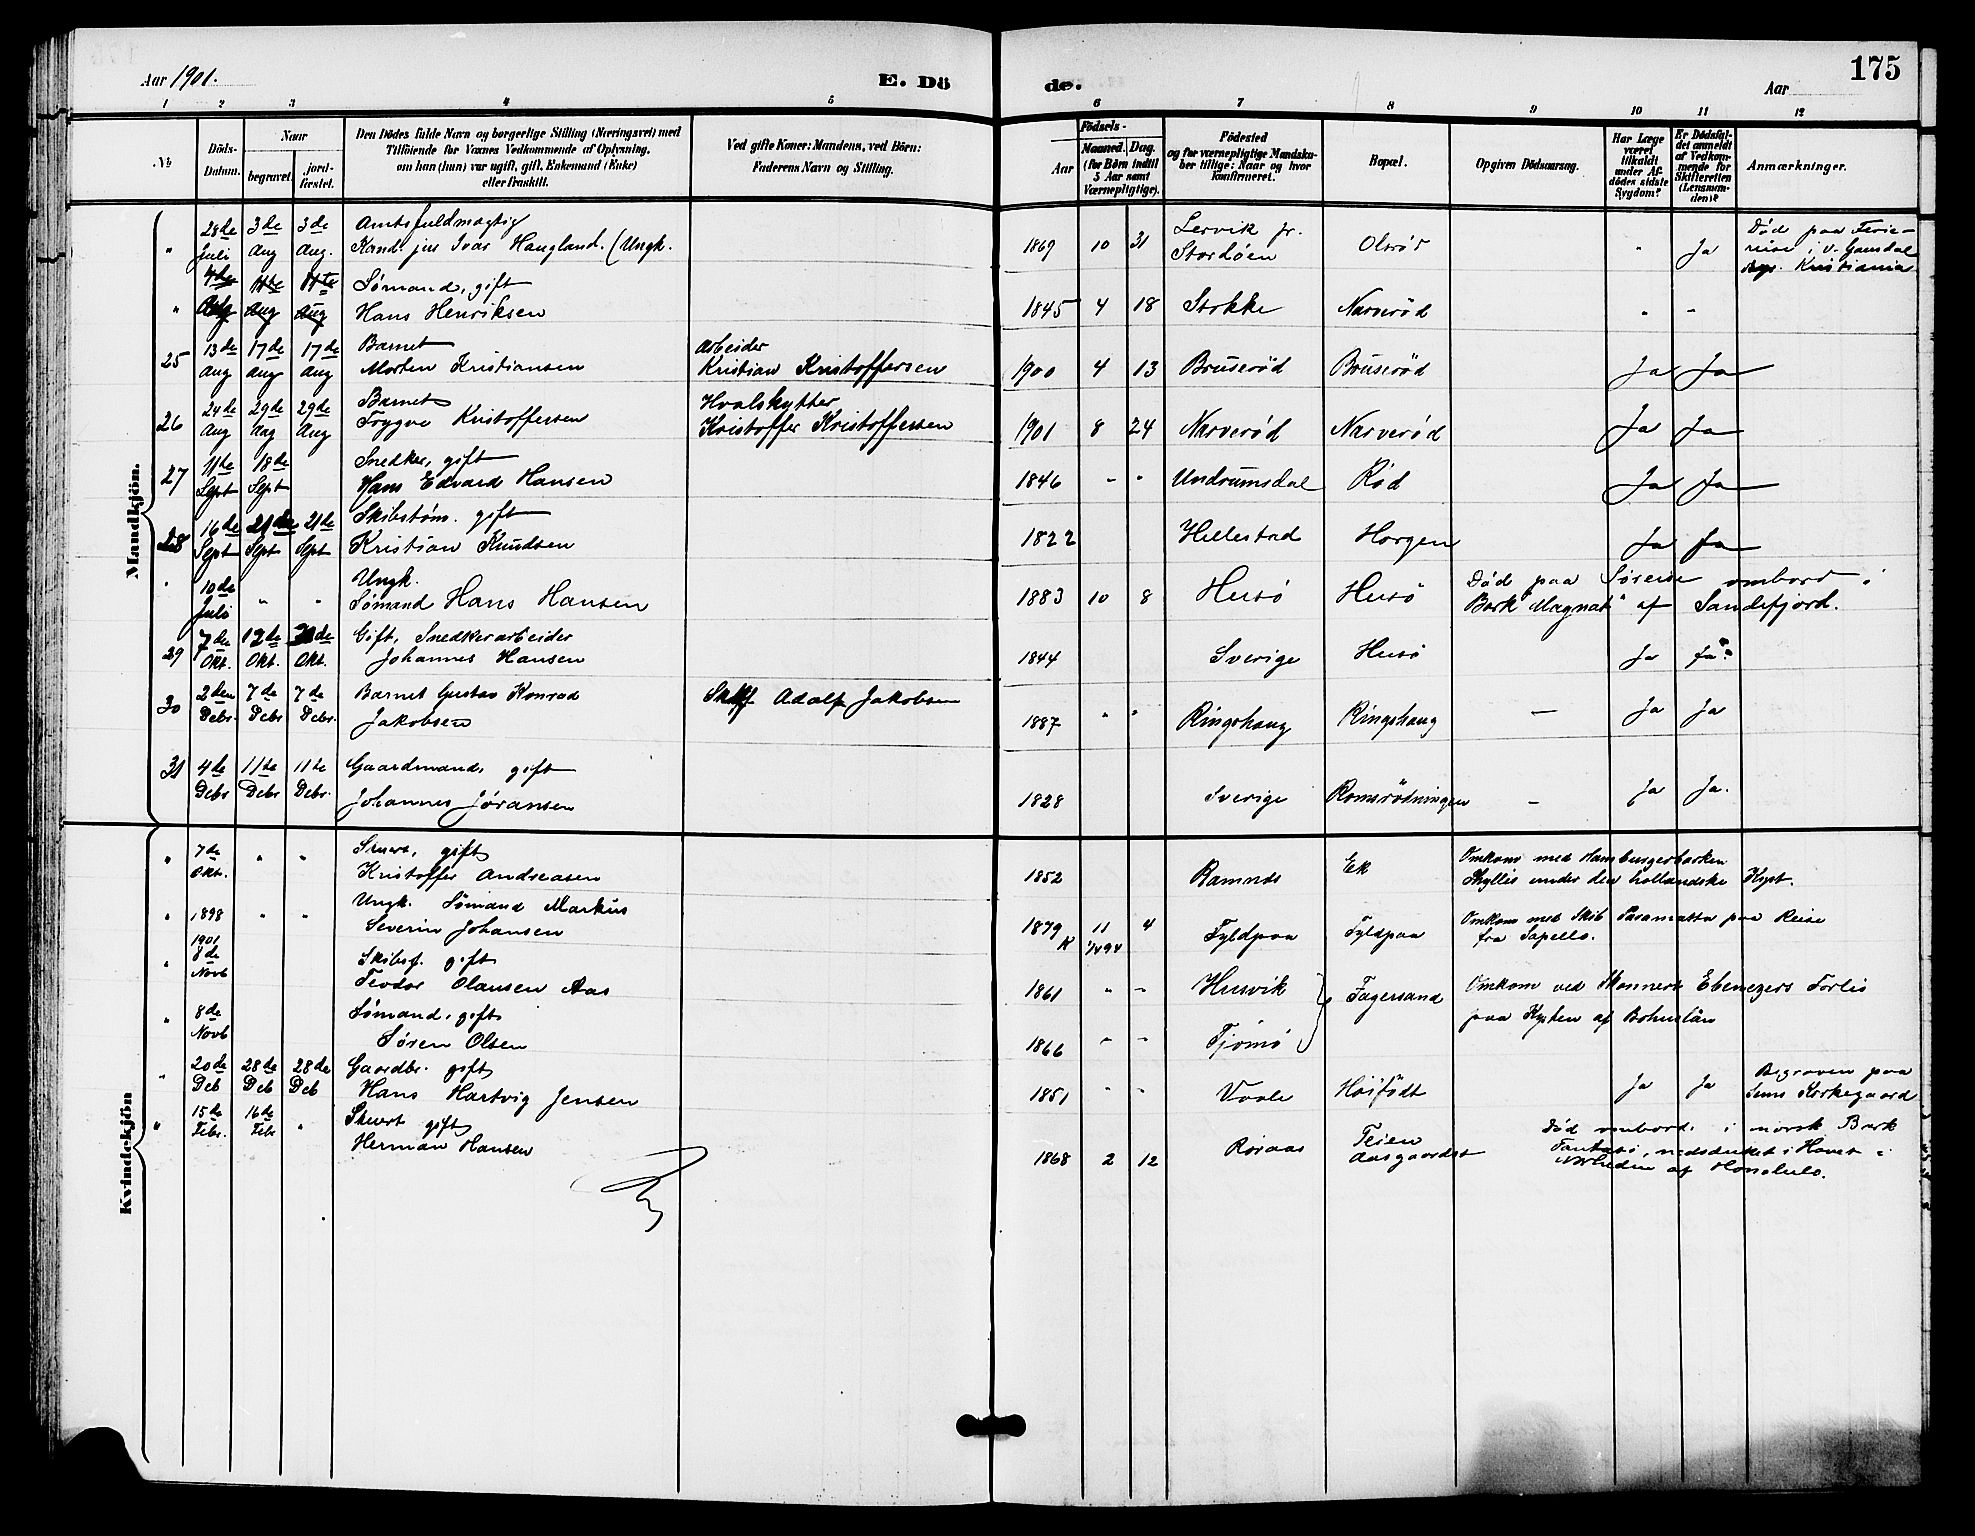 175
Aar 1901.
E. Dö
de.
Aar
1 2 3 4 5 6 7 8 9 10 11 12
№
Döds-Datum.
Naar
begravet.
jordfæstet.
Den Dödes fulde Navn og borgerlige Stilling (Næringsvei) med
Tilföiende for Voxnes Vedkommende af Oplysning,
om han (hun) var ugift, gift, Enkemand (Enke)
eller fraskilt.
Ved gifte Koner: Mandens, ved Börn:
Faderens Navn og Stilling.
Födsels-
Aar
Maaned. Dag.
(for Börn indtil
5 Aar samt
Værnepligtige).
Födested
og for værnepligtige Mandskaber tillige: Naar og hvor
konfirmeret.
Bopæl.
Opgiven Dödsaarsag.
Har Læge
været
tilkaldt
under Afdödes sidste
Sygdom?
Er Dödsfaldet anmeldt
af Vedkommende for
Skifteretten
(Lensmanden)?
Anmærkninger.
Mandkjön.
" 28de Juli 3de Aug 3de Aug. Amtsfuldmægtig
Kand. jur Ivar Haugland. (Ungk. 1869 10 31 Lervik pr. Stordøen Olsrød " Ja Død paa Ferie-
reise i V. Gausdal
Kristiania
" 4de Aug 11te Aug 11te Aug Sømand, gift
Hans Henriksen 1845 4 18 Stokke Narverød " "
25 13de Aug 17de Aug 17de Aug Barnet
Morten Kristiansen Arbeider
Kristian Kristoffersen 1900 4 13 Bruserød Bruserød Ja Ja
26 24de Aug 29de Aug 29de Aug Barnet
Trygve Kristoffersen Hvalskytter
Kristoffer Kristoffersen 1901 8 24 Narverød Narverød Ja Ja
27 11te Sept 18de Sept Snedker, gift
Hans Edvard Hansen 1846 " " Undrumsdal Rød Ja Ja
28 16de Sept 21de Sept 21de Sept Skibstøm. gift
Kristian Knudsen 1822 Hillestad Horgen Ja Ja
" 10de Juli " " Ungk.
Sømand Hans Hansen 1883 10 8 Husø Husø Død paa Søreise ombord i
Bark "Magnat" af Sandefjord.
29 7de Okt. 12de Okt. Okt. Gift, Snedkerarbeider
Johannes Hansen 1844 Sverige Husø Ja Ja
30 2den Debr. 7de Debr 7de Debr. Barnet Gustav Konrad
Jakobsen Adolf Jakobsen 1887 " " Ringshaug Ringshaug — Ja Ja
31 4de Debr 11te Debr 11te Debr. Gaardmand, gift
Johannes Jøransen 1828 Sverige Romsrødningen - Ja Ja.
Kvindekjön
" 7de Okt. " " Stuert, gift
Kristoffer Andreasen 1852 Ramnes Ek Omkom med Hamburgerbarken
Thyllis under den hollandske Kyst.
" 1898 " " Ungk. Sømand Markus
Severin Johansen 1879 11 4 K 1/10 94 Fyldpaa Fyldpaa Omkom med Skib Paramatta paa Reise
fra Sapello.
" 1901 8de Novb Skibsf. gift
Teodor Olausen Aas 1861 " " Husvik Fagersand Omkom ved Skonnert Ebenezers Forlis
paa Kysten af Bohuslän
" 8de Novb Sømand, gift
Søren Olsen 1866 " " Tjømø
" 20de Deb 28de Deb 28de Deb Gaardbr. gift
Hans Hartvig Jensen 1851 " " Vaale Høifødt Ja Ja Begraven paa
Sems Kirkegaard
" 15de Febr. 16de Febr " Stuert gift
Herman Hansen 1868 2 12 Roraas Teien
Aasgaardst Død ombord i norsk Bark
Fantasi, nedsænket i Havet i
Nærheden af Honolulu.